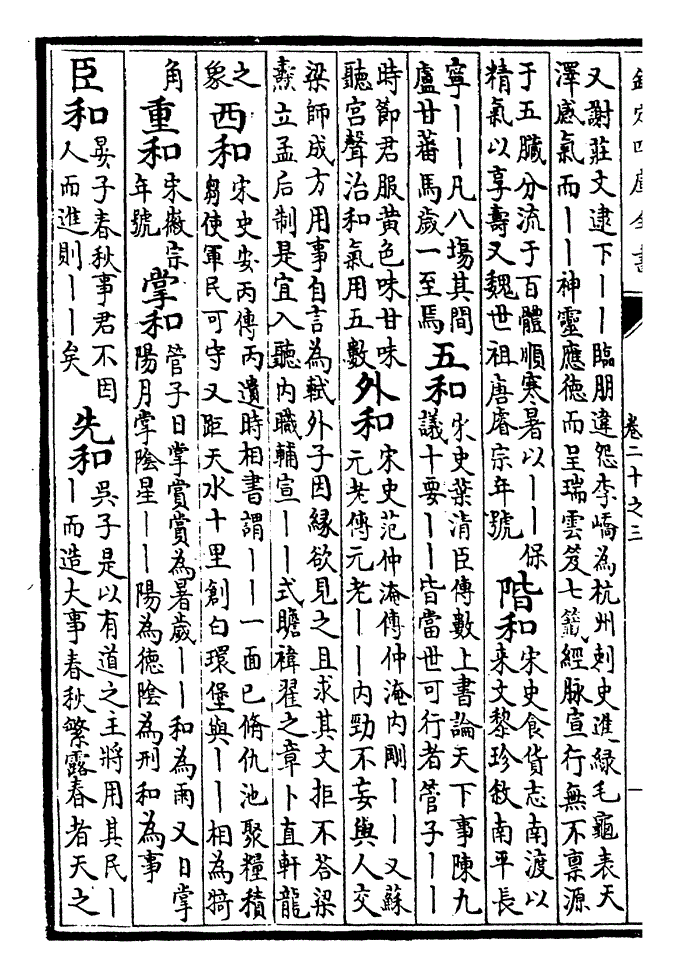 欽定四庫全書
卷二十之三
又謝莊文逮下丨丨臨朋違怨李嶠為杭州刺史進綠毛龜表天
澤感氣而丨丨神靈應徳而呈瑞雲笈七籤經脉宣行無不禀源
于五臟分流于百體順寒暑以丨丨保
精氣以享壽又魏世祖唐睿宗年號
階和
宋史食貨志南渡以
来文黎珍敘南平長
寧丨丨凡八塲其間
盧甘蕃馬歲一至焉
五和
宋史葉清臣傳數上書論天下事陳九
議十要丨丨皆當世可行者管子丨丨
時節君服黄色味甘味
聽宮聲治和氣用五數
外和
宋史范仲淹傳仲淹内剛丨丨又蘇
元老傳元老丨丨内勁不妄與人交
梁師成方用事自言為軾外子因緣欲見之且求其文拒不荅梁
燾立孟后制是宜入聽内職輔宣丨丨式瞻褘翟之章卜直軒龍
之
象
西和
宋史安丙傳丙遺時相書謂丨丨一面已脩仇池聚糧積
芻使軍民可守又距天水十里創白環堡與丨丨相為犄
角
重和
宋徽宗
年號
掌和
管子日掌賞賞為暑歲丨丨和為雨又日掌
陽月掌陰星丨丨陽為徳陰為刑和為事
臣和
晏子春秋事君不因
人而進則丨丨矣
先和
吳子是以有道之王將用其民丨
丨而造大事春秋繁露春者天之